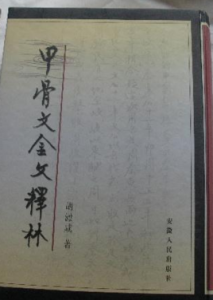 甲骨文金文釋林
胡澱咸 著
安徽人民出版社